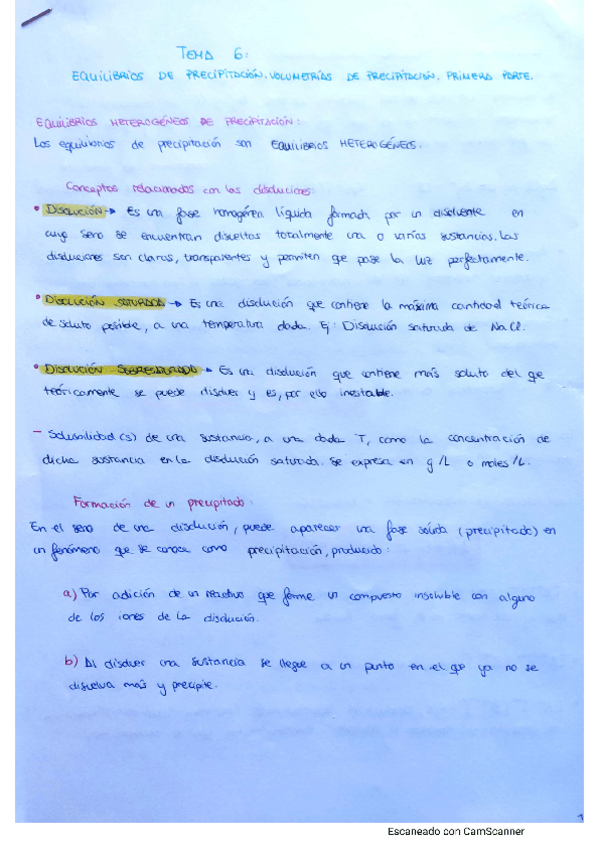 TEMA 6:
EQUILIBRIOS DE PRECIPITACIÓN. VOLUMETRÍAS DE PRECIPITACIÓN. PRIMERA PARTE.
EQUILIBRIOS HETEROGÉNEOS DE PRECIPITACIÓN:
Los equilibrios de precipitación son EQUILIBRIOS HETEROGÉNEOS.
Conceptos relacionados con las disoluciones:
• DISOLUCIÓN → Es una fase homogénea líquida formada por un disolvente en
cuyo seno se encuentran disueltas totalmente una o varias sustancias. Las
disoluciones son claras, transparentes y permiten que pase la luz perfectamente.
• DISOLUCIÓN SATURADA → Es una disolución que contiene la máxima cantidad teórica
de soluto posible, a una temperatura dada. Ej: Disolución saturada de NaCl.
• DISOLUCIÓN SOBRESATURADA → Es una disolución que contiene más soluto del que
teóricamente se puede disolver y es, por ello inestable.
- Solubilidad (s) de una sustancia, a una dada T, como la concentración de
dicha sustancia en la disolución saturada. Se expresa en g/L o moles/L.
Formación de un precipitado:
En el seno de una disolución, puede aparecer una fase sólida (precipitado) en
un fenómeno que se conoce como precipitación, producido:
a) Por adición de un reactivo que forme un compuesto insoluble con alguno
de los iones de la disolución.
b) Al disolver una sustancia se llegue a un punto en el que ya no se
disuelva más y precipite.
Escaneado con CamScanner